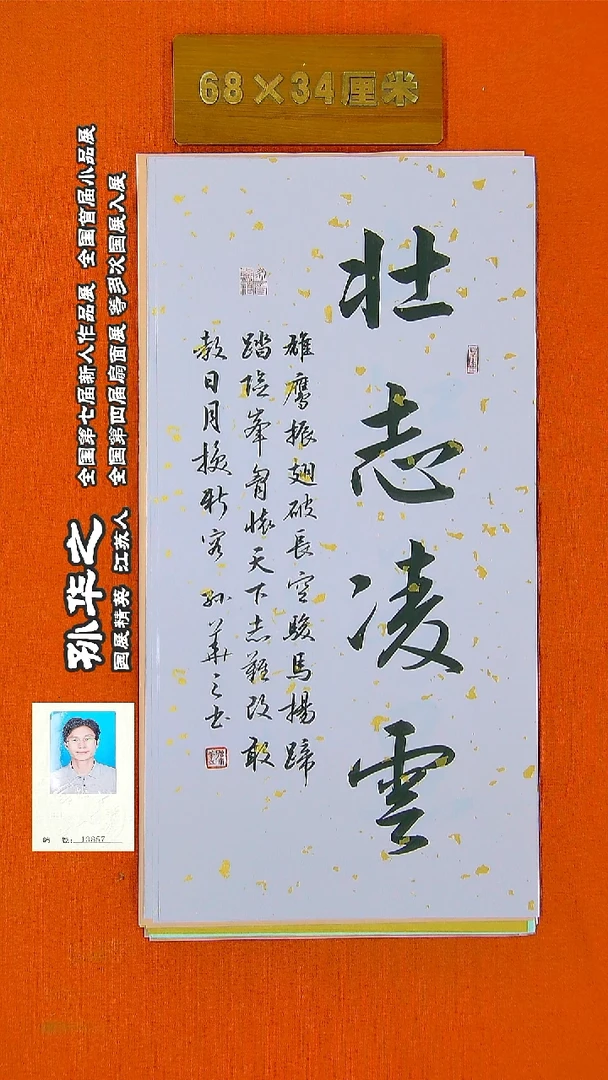 68×34厘米
壮志凌雲
雄鹰振翅破長空駿馬揚蹄
踏險峯胷懷天下志難改敢
教日月换新容 孙華之书
孙华之
国展精英 江苏人
全国第七届新人作品展 全国首届小品展
全国第四届扇面展 等多次国展入展
13857